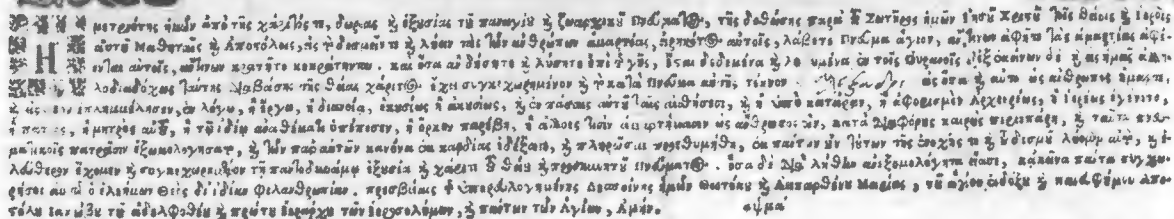 Η μετριότης ἡμῶν ἀπὸ τῆς χάριτός τε, δωρεᾶς ϗ ἐξουσίας τοῦ παναγίου ϗ ζωαρχικοῦ Πνεύματος, τῆς δοθείσης παρὰ τοῦ Σωτῆρος ἡμῶν Ἰησοῦ Χριστοῦ τοῖς θείοις ϗ ἱεροῖς
αὐτοῦ Μαθηταῖς ϗ Ἀποστόλοις, εἰς τὸ δεσμεῖν τε ϗ λύειν τὰς τῶν ἀνθρώπων ἁμαρτίας, εἰρηκότος αὐτοῖς, λάβετε Πνεῦμα ἅγιον, ἄν τινων ἀφῆτε τὰς ἁμαρτίας ἀφί-
ενται αὐτοῖς, ἄν τινων κρατῆτε κεκράτηνται. καὶ ὅσα ἂν δήσητε ϗ λύσητε ἐπὶ γῆς, ἔσται δεδεμένα ϗ λελυμένα ἐν τοῖς Οὐρανοῖς, ἐξ ἐκείνων δὲ ϗ εἰς ἡμᾶς ἀλλη-
λοδιαδόχως ταύτης διαβάσης τῆς θείας χάριτος, ἔχει συγκεχωρημένον ϗ τὸ κατὰ Πνεῦμα αὐτῆς τέκνον εἰς ὅσα ϗ αὐτὸ ὡς ἄνθρωπος ἥμαρτε,
ϗ εἰς Θεὸν ἐπλημμέλησεν, ἐν λόγῳ, ἢ ἔργῳ, ἢ διανοίᾳ, ἑκουσίως ἢ ἀκουσίως, ϗ ἐν πάσαις αὐτοῦ ταῖς αἰσθήσεσι, ϗ εἰ ὑπὸ κατάραν, ἢ ἀφορισμὸν Ἀρχιερέως, ἢ ἱερέως ἐγένετο,
ἢ πατρὸς, ἢ μητρὸς αὐτοῦ, ἢ τῷ ἰδίῳ ἀναθέματι ὑπέπεσεν, ἢ ὅρκον παρέβη, ἢ ἄλλοις τισὶν ἁμαρτήμασιν ὡς ἄνθρωπος κατὰ διαφόρους καιροὺς περιέπεσε, ϗ ταῦτα πνευ-
ματικοῖς πατράσιν ἐξωμολογήσατο, ϗ τὸν παρ' αὐτῶν κανόνα ἐκ καρδίας ἐδέξατο, ϗ πληρῶσαι προεθυμήθη, ἐκ πάντων οὖν τούτων τῆς ἐνοχῆς τε ϗ τοῦ δεσμοῦ λύομεν αὐτὸ, ϗ ἐ-
λεύθερον ἔχομεν ϗ συγκεχωρημένον τῇ παντοδυνάμῳ ἐξουσίᾳ ϗ χάριτι τοῦ θείου ϗ προσκυνητοῦ Πνεύματος. ὅσα δὲ διὰ λήθην ἀνεξομολόγητα εἴασε, κἀκεῖνα πάντα συγχω-
ρήσοι αὐτῷ ὁ ἐλεήμων Θεὸς δι' ἰδίαν Φιλανθρωπίαν. πρεσβείαις τῆς ὑπερευλογημένης Δεσποίνης ἡμῶν Θεοτόκου ϗ Ἀειπαρθένου Μαρίας, τοῦ ἁγίου ἐνδόξου ϗ πανευφήμου Ἀπο-
στόλου Ἰακώβου τοῦ ἀδελφοθέου ϗ πρώτου ἱεράρχου τῶν Ἱεροσολύμων, ϗ πάντων τῶν Ἁγίων, Ἀμήν. αψμα